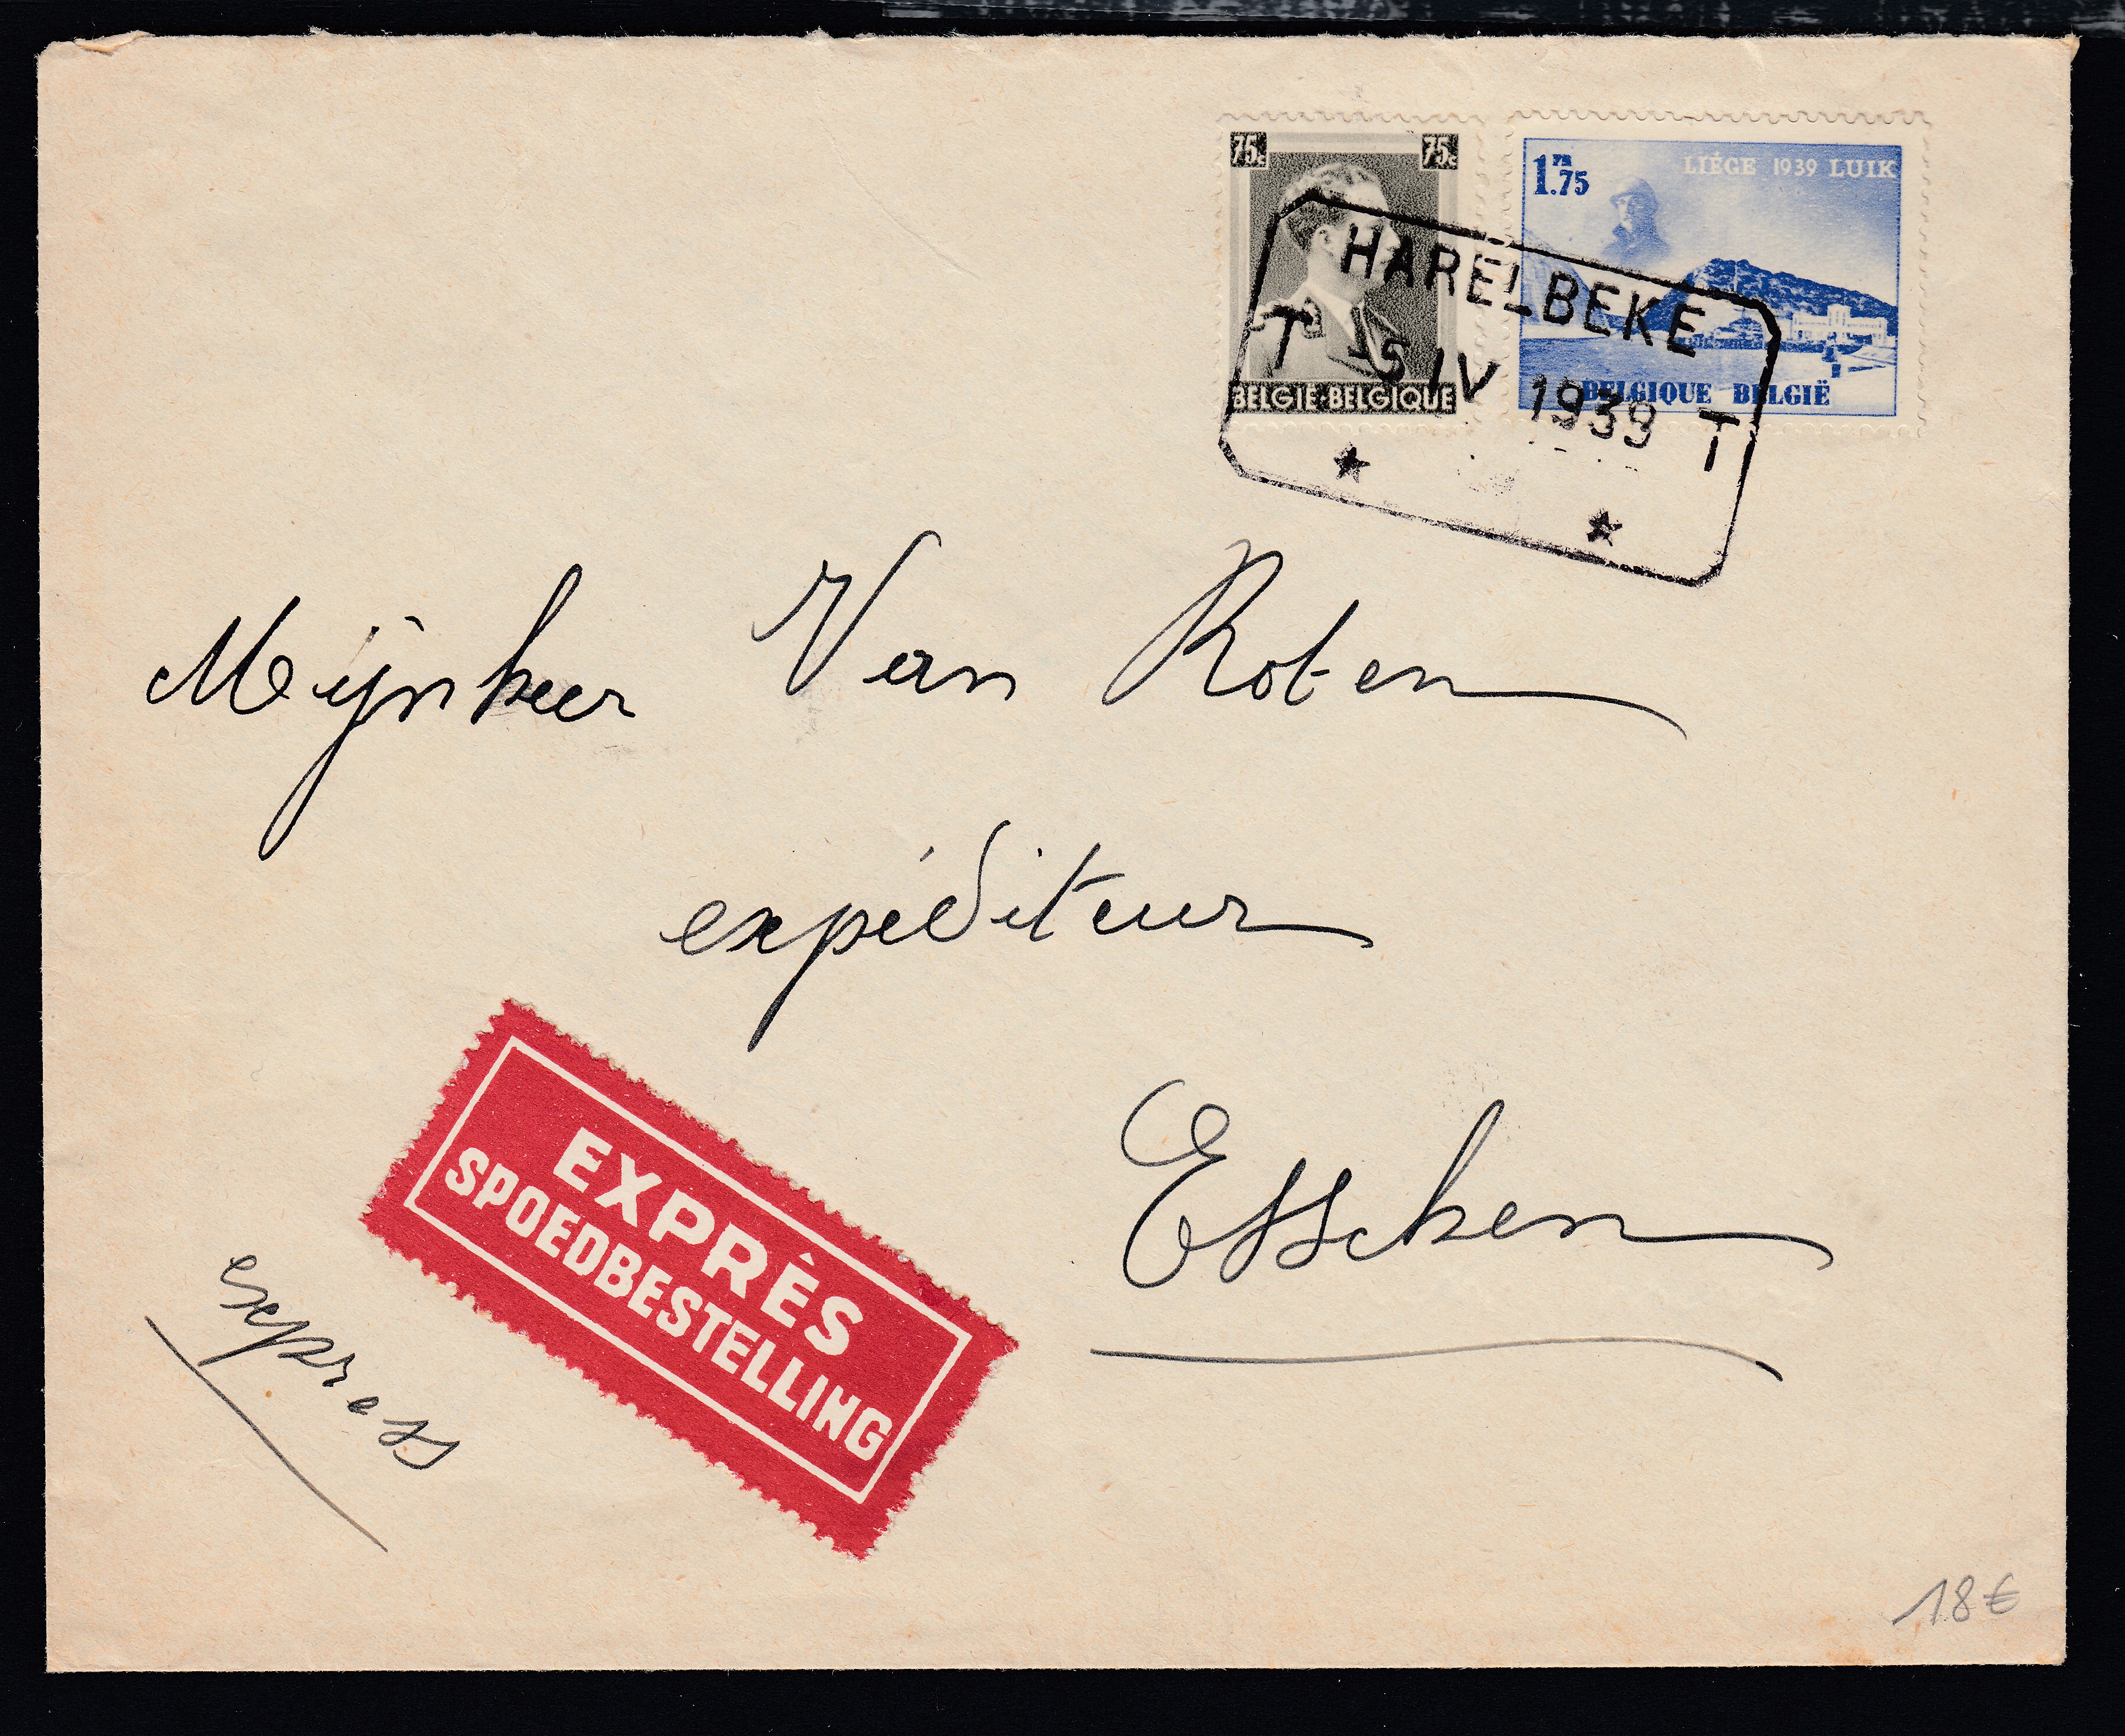 75c 75c
BELGIE·BELGIQUE
1FR.75
LIÉGE 1939 LUIK
BELGIQUE BELGIË
HARELBEKE
T 5 IV 1939 T
Mijnheer Van Roten
expéditeur
Esschen
EXPRÈS
SPOEDBESTELLING
express
18€